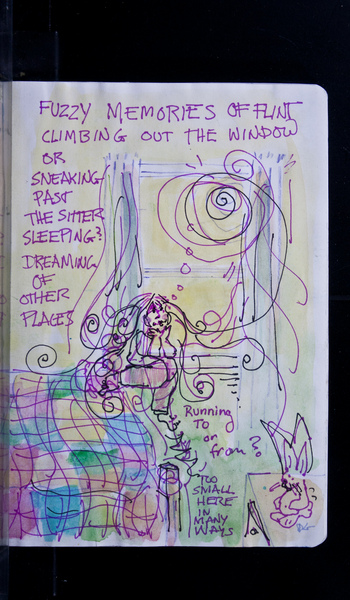 FUZZY MEMORIES OF FLINT
CLIMBING OUT THE WINDOW
OR
SNEAKING
PAST
THE SITTER
SLEEPING?
DREAMING
OF
OTHER
PLACES
Running
To
or
from?
TOO
SMALL
HERE
IN
MANY
WAYS